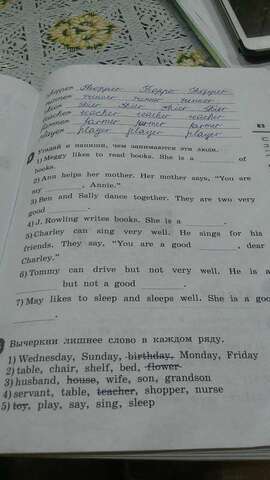 shopper shopper shopper shopper
runner runner runner runner
skier skier skier skier
teacher teacher teacher teacher
farmer farmer farmer
player player player player
Угадай и напиши, чем занимаются эти люди.
1) Meggy likes to read books. She is a ______ of
books.
2) Ann helps her mother. Her mother says, "You are
my ______, Annie."
3) Ben and Sally dance together. They are two very
good ______.
4) J. Rowling writes books. She is a ______.
5) Charley can sing very well. He sings for his
friends. They say, "You are a good ______, dear
Charley."
6) Tommy can drive but not very well. He is a
but not a good ______.
7) May likes to sleep and sleeps well. She is a good
______.
Вычеркни лишнее слово в каждом ряду.
1) Wednesday, Sunday, birthday, Monday, Friday
2) table, chair, shelf, bed, flower
3) husband, house, wife, son, grandson
4) servant, table, teacher, shopper, nurse
5) toy, play, say, sing, sleep